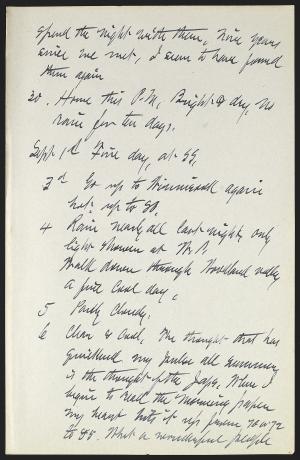 spend the night with them, nine years
since we met, I seem to have found
them again
30. Home this P.M. Bright & dry, no
rain for ten days.
Sept 1st Fine day, at SS,
3d Go up to Winnisook again
hot, up to 80.
4 Rain nearly all last night, only
light shower at W.P.
Walk down through Woodland valley
a fine cool day,
5 Partly Cloudy,
6 Clear & Cool, The thought that has
quickened my pulse all summer
is the thought of the Japs. When I
begin to read the morning paper
my heart beats it up from 70 or 72
to 85. What a wonderful people